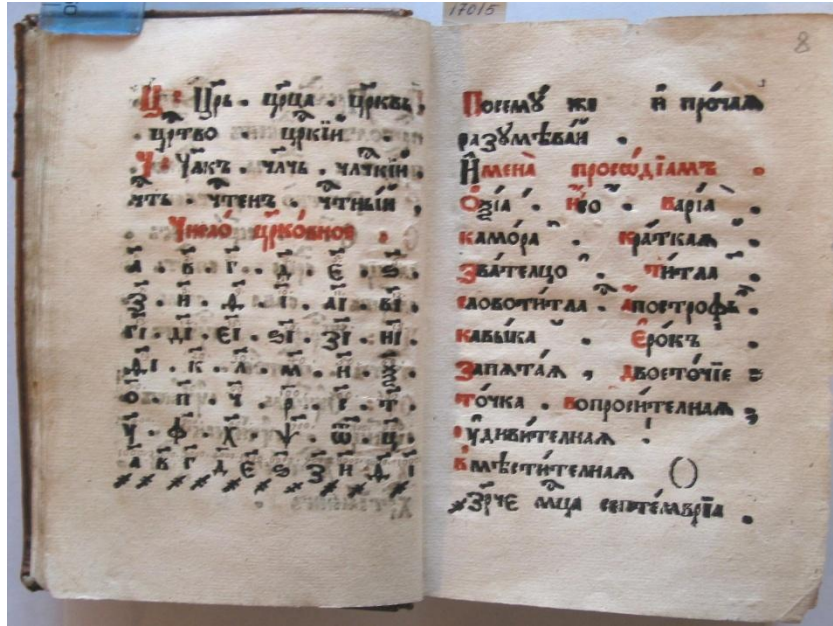 17015
8
Ц : Цр҃ь . цр҃ца . цр҃ковь ,
цр҃тво . цр҃кїй .
Ч : Чл҃къ . чл҃чь . чл҃чкїй ,
чть . чтенъ . чтный ,
Число̀ цр҃ко́вное :
а҃ . в҃ . г҃ . д҃ . є҃ . ѕ҃ .
і҃ . аі҃ . ві҃ .
гі҃ . ді҃ . єі҃ . ѕі҃ . зі҃ . иі҃ .
ѳі҃ . к҃ . л҃ . м҃ . н҃ . ѯ҃ .
о҃ . п҃ . ч҃ . р҃ . с҃ . т҃ .
у҃ . ф҃ . х҃ . ѱ҃ . ѿ҃ . ц҃ .
а҃ в҃ г҃ д҃ є҃ ѕ҃ з҃ и҃ ѳ҃ і҃
Посемꙋ́ же и҆ про́чаѧ
разꙋмѣва́й .
И҆мена̀ просѡді́амъ .
Ѻ҆ѯі́а . И҆́со . Варі́а .
камо́ра . кра́ткаѧ .
Зва́телцо . Ти́тла .
словоти́тла . а҆постро́фъ .
кавы́ка . Е҆ро́къ .
Запѧта́ѧ , двоето́чїе :
то́чка . вопроси́телнаѧ ;
ᲂу҆диви́телнаѧ !
вмѣсти́телнаѧ ()
Зр҃че мц҃а септе́мврїа .